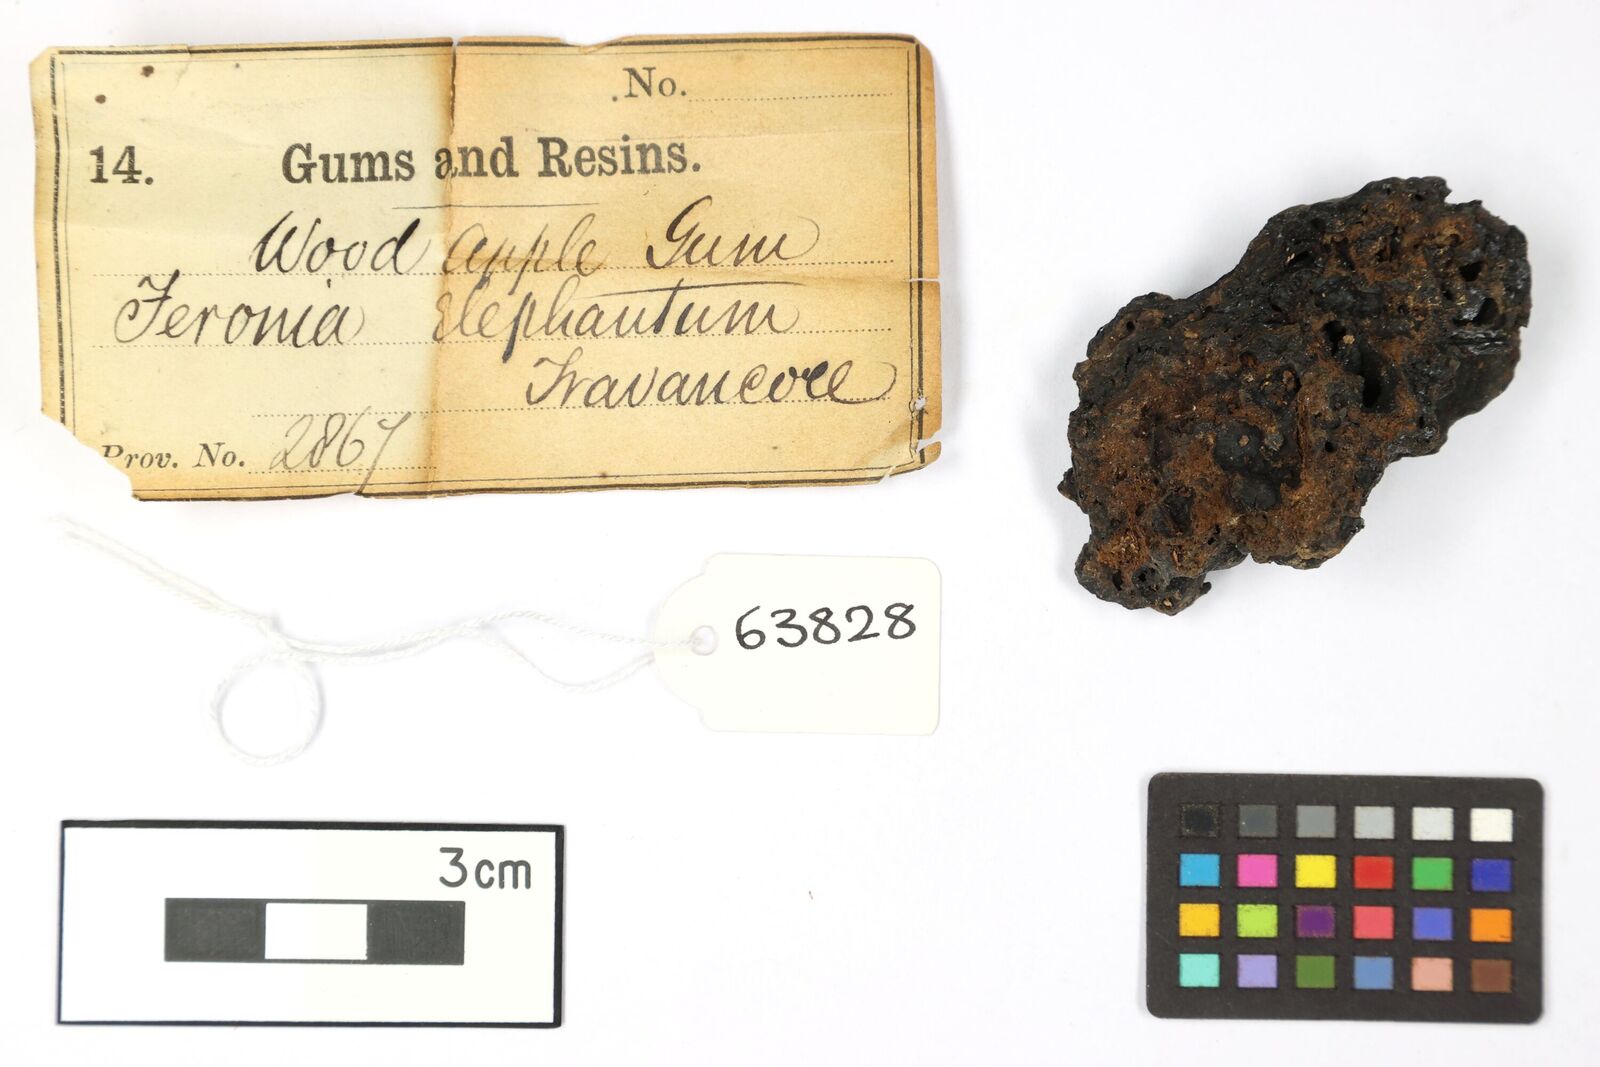 No.
14. Gums and Resins.
Wood apple Gum
Feronia Elephantum
Travancore
Prov. No. 2867
63828
3cm